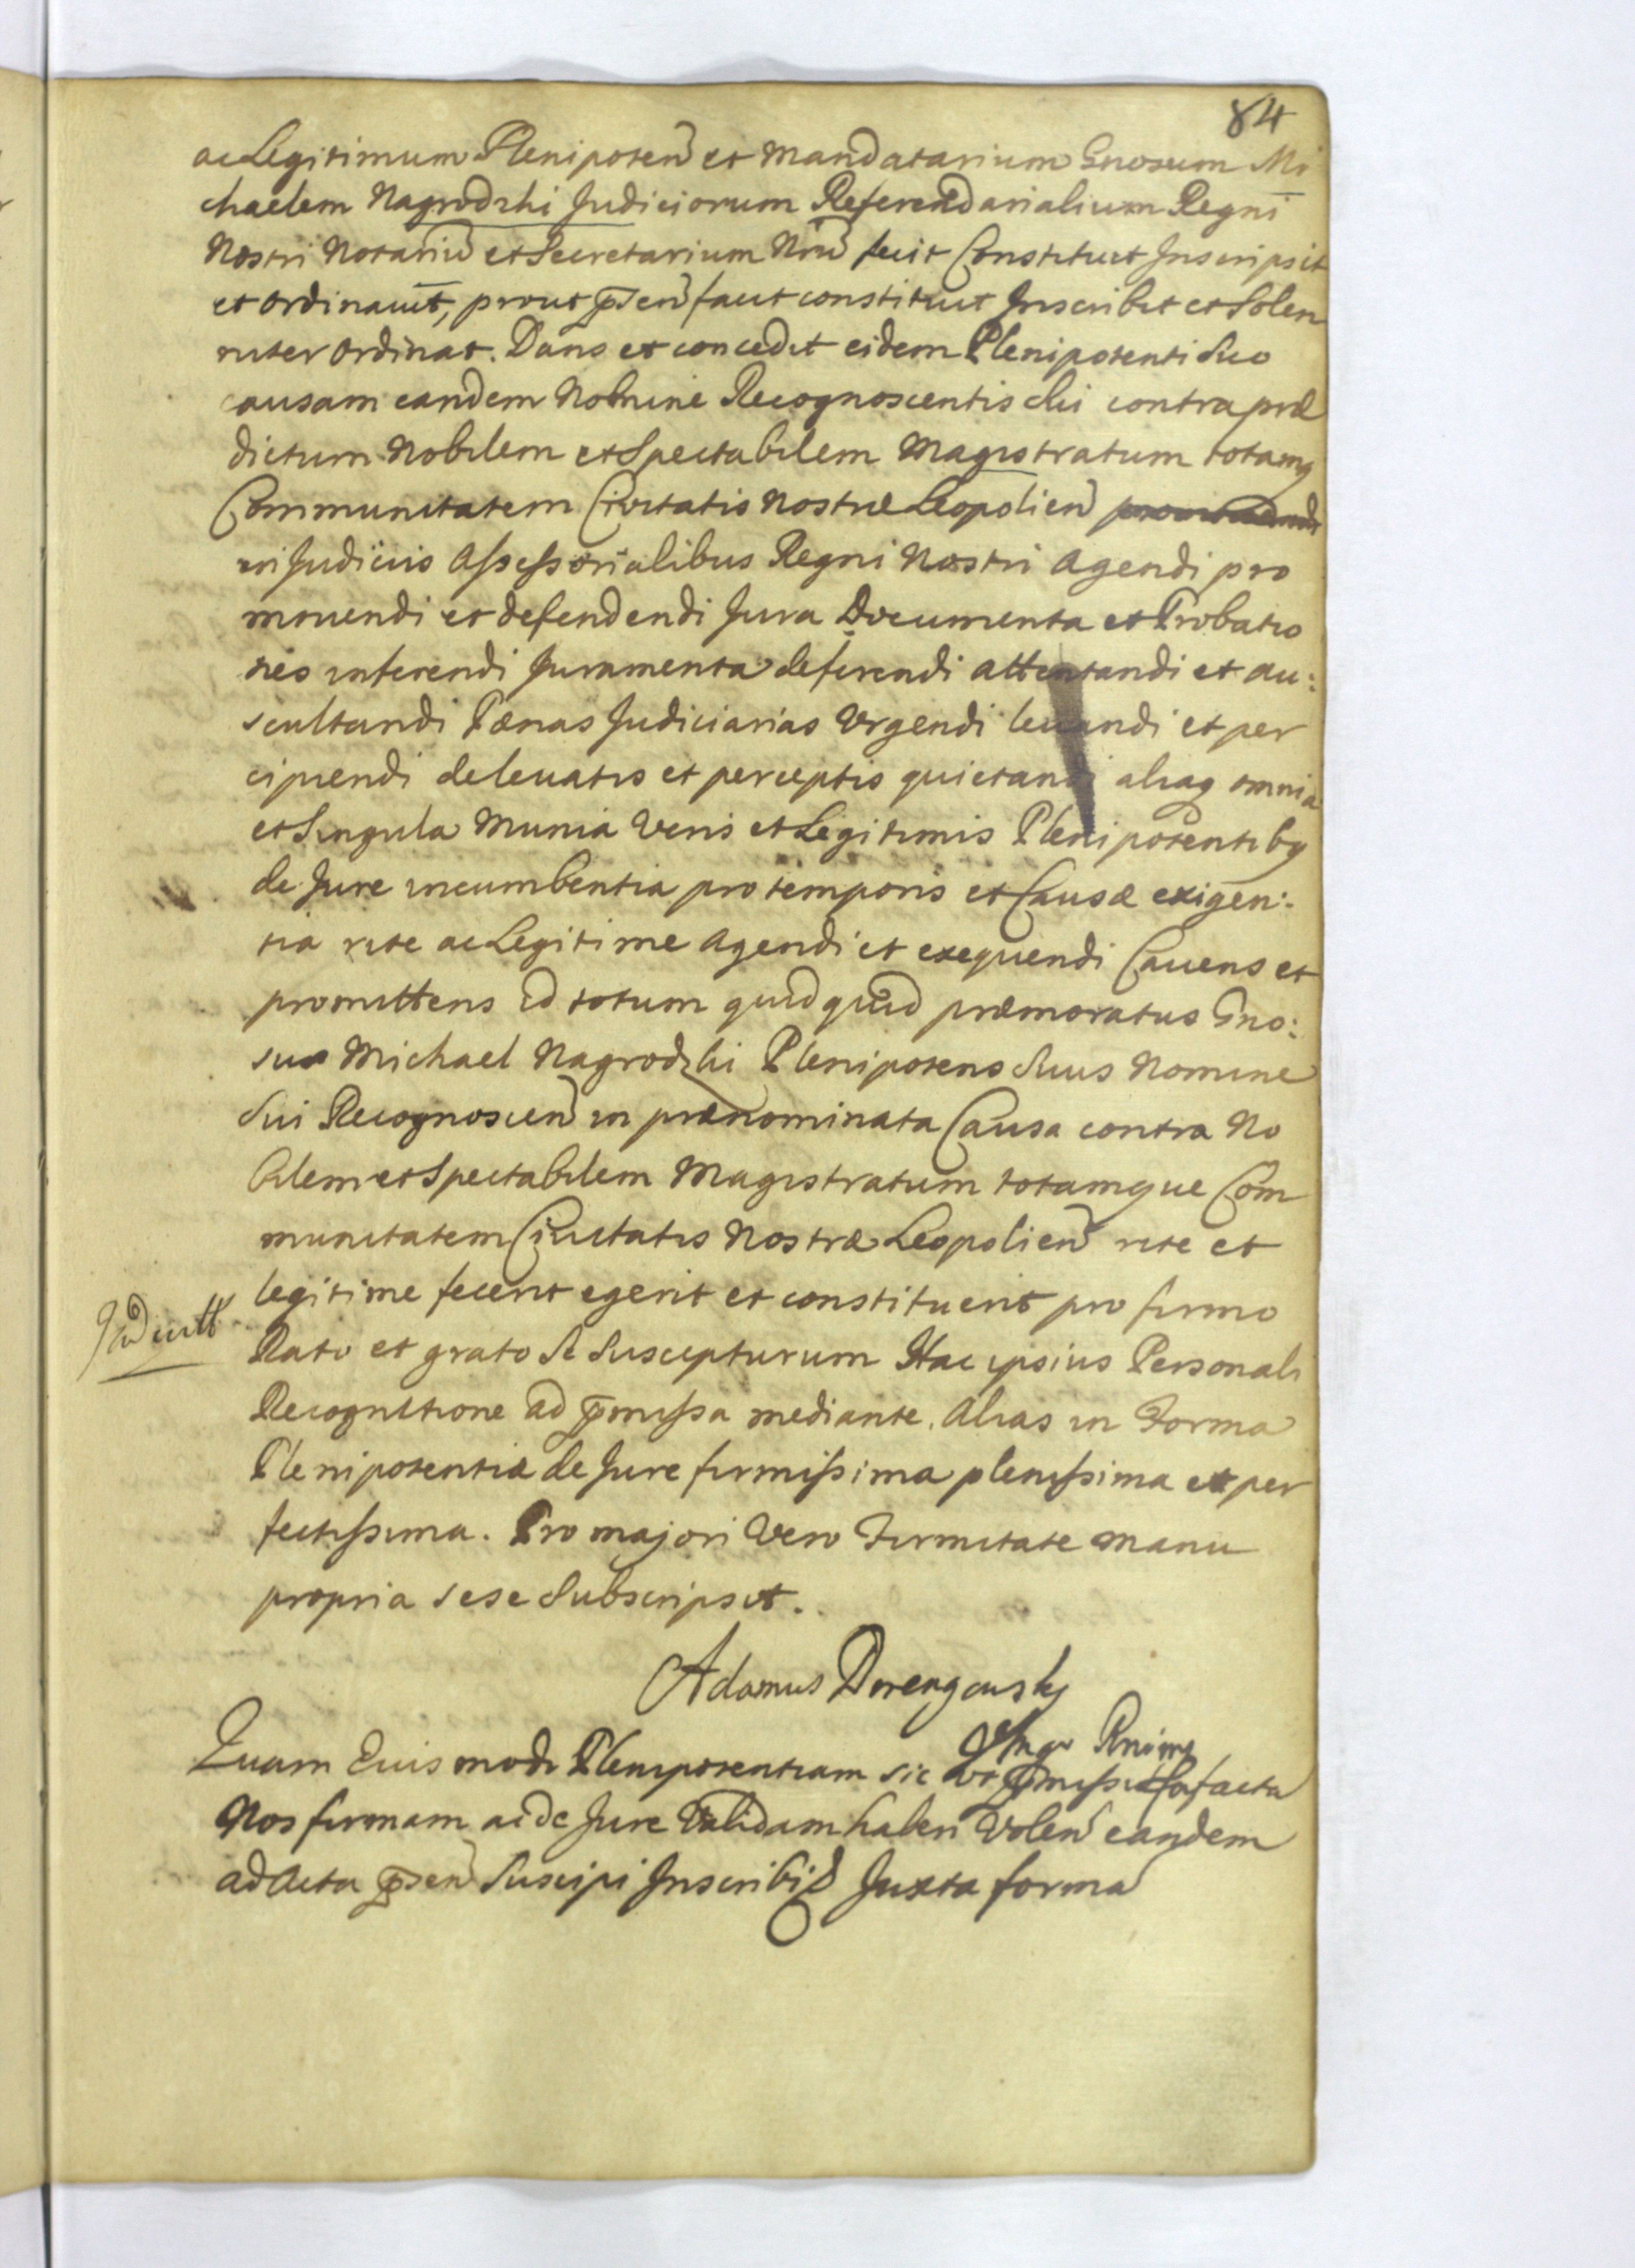 84
ac Legitimum Plenipoten et Mandatarium Gnosum Mi
chaelem Nagrodzki Judiciorum Referendarialium Regni
Nostri Notariu et Secretarium Nru fecit Constituit Inscripsit
et Ordinauit, prout p̄sen facit constituit Inscribit et Solen
niter Ordinat. Dans et concedit eidem Plenipotenti Suo
causam eandem Nomine Recognoscentis Sui contra præ
dictum Nobilem et Spectabilem Magistratum totamq
Communitatem Ciuitatis Nostræ Leopolien
in Judicijs Assessorialibus Regni Nostri Agendi pro
mouendi et defendendi Jura Documenta et Probatio
nes inferendi Juramenta deferendi attentandi et au:
scultandi Pænas Judiciarias Vrgendi leuandi et per
cipiendi de leuatis et perceptis quietandi aliaq omnia
et Singula Munia Veris et Legitimis Plenipotentibq
de Jure incumbentia pro temporis et Causæ exigen:
tia rite ac Legitime Agendi et exequendi Cauens et
promittens id totum quidquid præmoratus Gno:
sus Michael Nagrodzki Plenipotens Suus Nomine
Sui Recognoscen in prænominata Causa contra No
bilem et Spectabilem Magistratum totamque Com
munitatem Ciuitatis Nostræ Leopolien rite et
legitime fecerit egerit et constituerit pro firmo
Rato et grato Se Suscepturum Hac ipsius Personali
Recognitione ad p̄missa mediante. Alias in Forma
Plenipotentiæ de Jure firmissima plenissima et per
fectissima. Pro majori Vero Firmitate manu
propria sese Subscripsit.
Adamus
Quam Eiusmodi Plenipotentiam sic Vt p̄missu facta
Nos firmam ac de Jure Validam haberi Volen eandem
ad Acta p̄sen Suscipi Inscribi Juxta forma